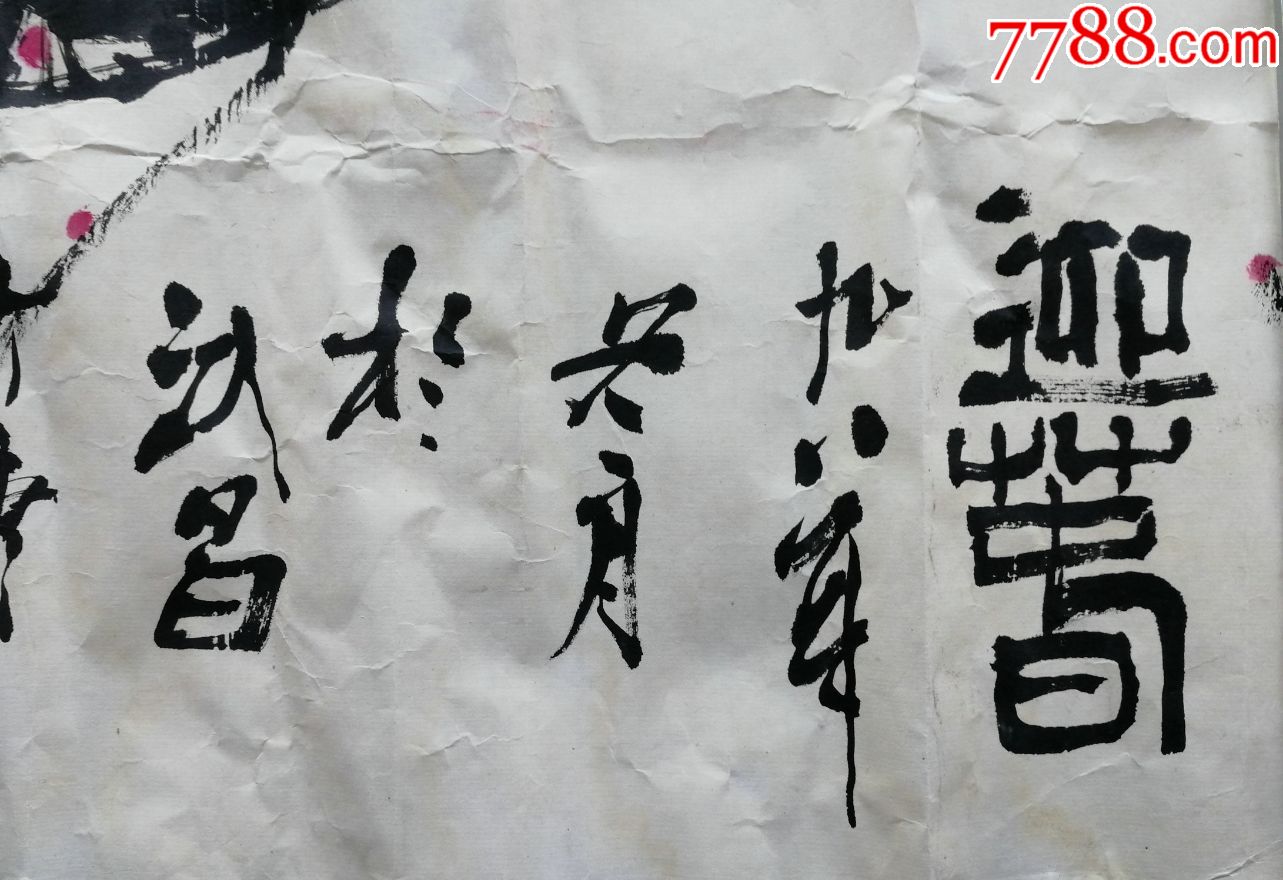 7788.com
迎春
九八年
月
於
武昌